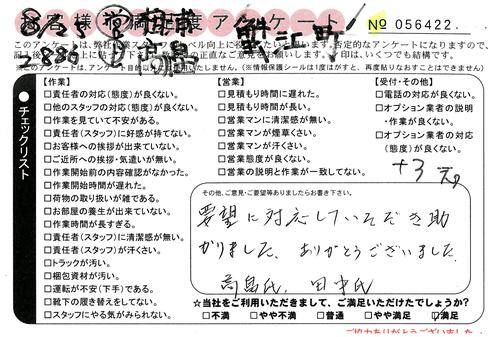 お客様満足度アンケート
No 056422
蟹江町
このアンケートは、弊社
否定的なアンケートになりますので、
の正直なご意見をお願いします。レ印は、いくつでも結構です。
※このアンケートは、アンケート目的以外
いたしません。(※情報保護シールは1度はがすと、再度貼りなおすことはできません)
チェックリスト
【作業】
□責任者の対応(態度)が良くない。
□他のスタッフの対応(態度)が良くない。
□作業を見ていて不安がある。
□責任者(スタッフ)に好感が持てない。
□お客様への挨拶が出来ていない。
□ご近所への挨拶・気遣いが無い。
□作業開始前の内容確認がなかった。
□作業開始時間が遅れた。
□荷物の取り扱いが雑である。
□お部屋の養生が出来ていない。
□作業時間が長すぎる。
□責任者(スタッフ)に清潔感が無い。
□責任者(スタッフ)が汗くさい。
□トラックが汚い。
□梱包資材が汚い。
□運転が安全(下手)である。
□靴下の履き替えをしてない。
□スタッフにやる気がみられない。
【営業】
□見積もり時間に遅れた。
□見積もり時間が長い。
□営業マンに清潔感が無い。
□営業マンが煙草くさい。
□営業マンが汗くさい。
□営業態度が良くない。
□営業の説明と作業が一致してない。
【受付・その他】
□電話の対応が良くない。
□オプション業者の説明
・作業が良くない。
□オプション業者の対応
(態度)が良くない。
その他、ご意見・ご要望等ありましたらお書き下さい。
要望に対応していただき助
かりました、ありがとうございました
高島氏、田中氏
☆当社をご利用いただきまして、ご満足いただけたでしょうか?
□不満 □やや不満 □普通 □やや満足 ☑満足
ご協力ありがとうございました